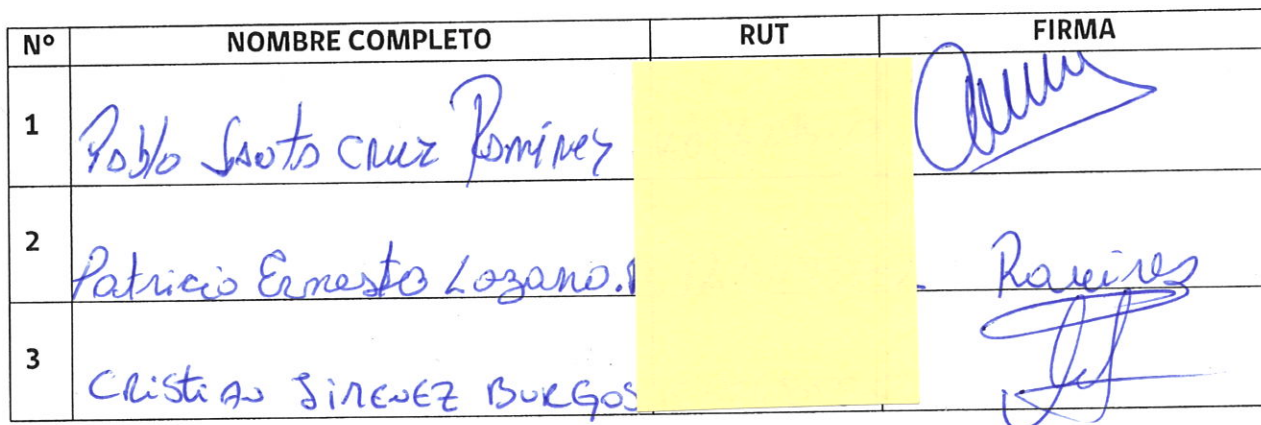 Nº NOMBRE COMPLETO RUT FIRMA
1 Pablo Santo Cruz Ramírez
2 Patricio Ernesto Lozano. Ramirez
3 Cristian Jimenez Burgos